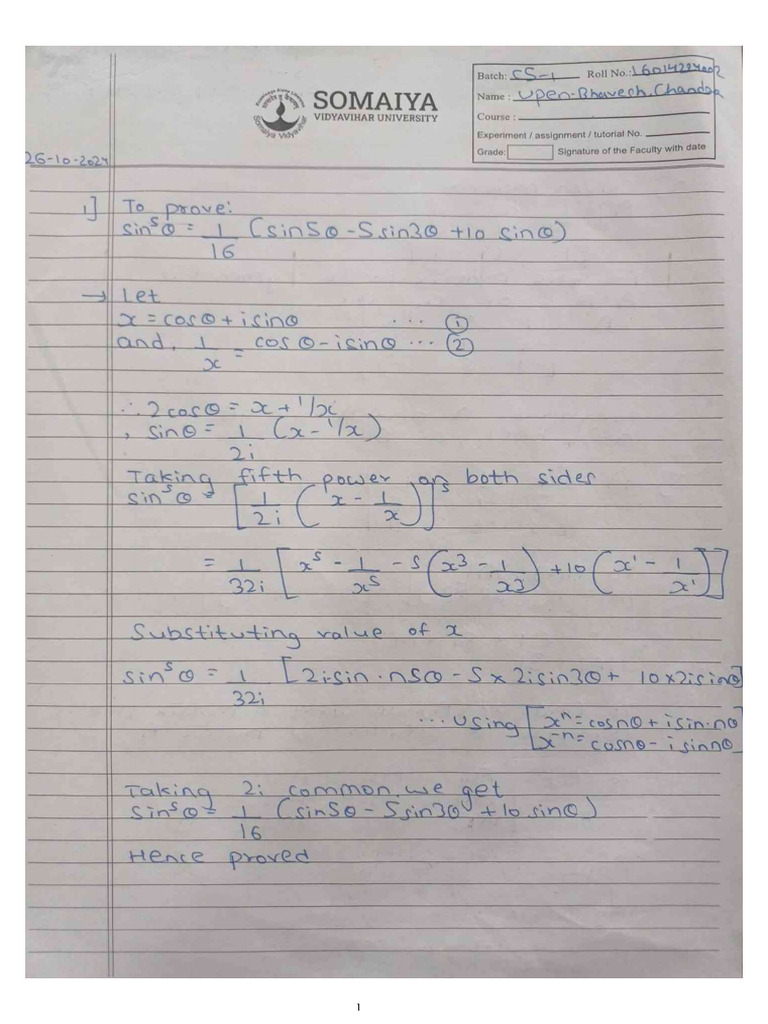 Batch: CS-1 Roll No.:
SOMAIYA
VIDYAVIHAR UNIVERSITY
Name: Upen. Bhavesh. Chandra
Course:
Experiment / assignment / tutorial No.
Grade: Signature of the Faculty with date
26-10-2024
1] To prove:
sin⁵θ = 1/16 (sin5θ - 5sin3θ + 10 sinθ)
→ Let
x = cosθ + isinθ ... ①
and, 1/x = cosθ - isinθ ... ②
∴ 2cosθ = x + 1/x
, sinθ = 1/2i (x - 1/x)
Taking fifth power on both sides
sin⁵θ = [1/2i (x - 1/x)]⁵
= 1/32i [x⁵ - 1/x⁵ - 5(x³ - 1/x³) + 10(x¹ - 1/x¹)]
Substituting value of x
sin⁵θ = 1/32i [2i sin·n5θ - 5 × 2isin3θ + 10×2isinθ]
... using [xⁿ = cosnθ + isin·nθ
x⁻ⁿ = cosnθ - isinnθ]
Taking 2i common, we get
sin⁵θ = 1/16 (sin5θ - 5sin3θ + 10 sinθ)
Hence proved
1